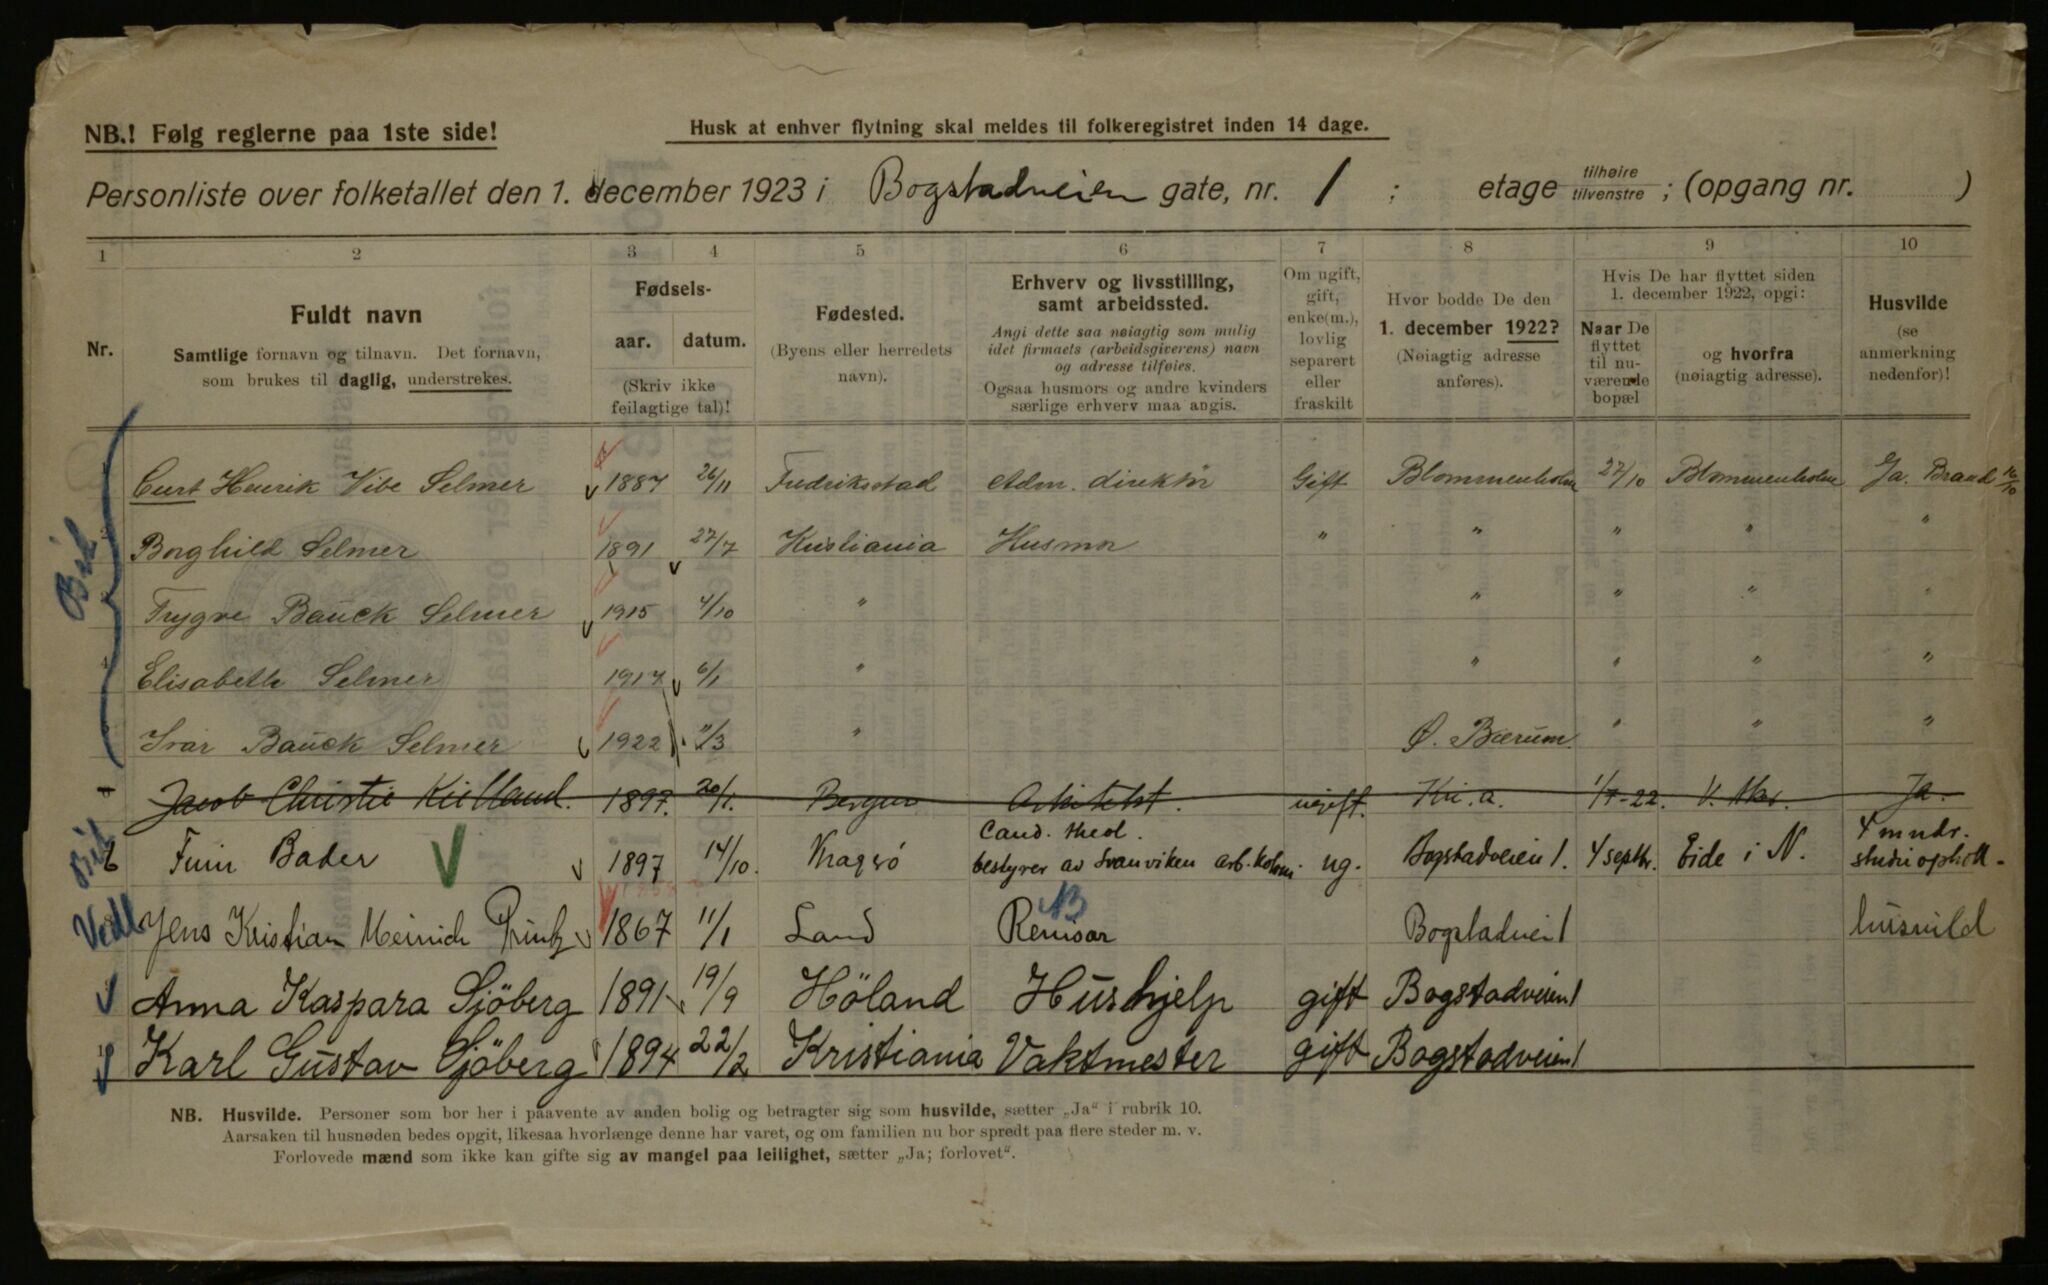 NB.! Følg reglerne paa 1ste side!
Husk at enhver flytning skal meldes til folkeregistret inden 14 dage.
Personliste over folketallet den 1. december 1923 i Bogstadveien gate, nr. 1 ; etage tilhøire tilvenstre ; (opgang nr. )
1 2 3 4 5 6 7 8 9 10
Nr.
Fuldt navn
Samtlige fornavn og tilnavn. Det fornavn,
som brukes til daglig, understrekes.
Fødsels-
aar. datum.
(Skriv ikke
feilagtige tal)!
Fødested.
(Byens eller herredets
navn).
Erhverv og livsstilling,
samt arbeidssted.
Angi dette saa nøiagtig som mulig
idet firmaets (arbeidsgiverens) navn
og adresse tilføies.
Ogsaa husmors og andre kvinders
særlige erhverv maa angis.
Om ugift,
gift,
enke(m.),
lovlig
separert
eller
fraskilt
Hvor bodde De den
1. december 1922?
(Nøiagtig adresse
anføres).
Hvis De har flyttet siden
1. december 1922, opgi:
Naar De
flyttet
til nu-
værende
bopæl
og hvorfra
(nøiagtig adresse).
Husvilde
(se
anmerkning
nedenfor)!
Curt Henrik Vibe Selmer 1887 26/11 Fredriksstad Adm. direktör Gift Blommenholm 27/10 Blommenholm Ja. Brand 16/10
Borghild Selmer 1891 27/7 Kristiania Husmor " " " " "
Trygve Bauck Selmer 1915 4/10 " " " " "
4 Elisabeth Selmer 1917 6/1 " " " " "
Ivar Bauck Selmer 1922 11/3 " Ø. Bærum. " " "
Jacob Christie Kielland. 1897. 20/1. Bergen Arkitekt. ugift. Kr.a. 1/7-22. V. Aker. Ja.
6 Finn Bader 1897 14/10. Kragerö Cand. theol. bestyrer av Svanviken arb.koloni ug. Bogstadveien 1. 4 septbr. Eide i N. 4 mndr. studieophold.
Jens Kristian Meinich Printz 1867 11/1 Land Revisor Bogstadvei 1 husvild
Anna Kaspara Sjöberg 1891 19/9 Höland Hushjelp gift Bogstadveien 1
Karl Gustav Sjöberg 1894 22/2 Kristiania Vaktmester gift Bogstadveien 1
NB. Husvilde. Personer som bor her i paavente av anden bolig og betragter sig som husvilde, sætter „Ja“ i rubrik 10.
Aarsaken til husnøden bedes opgit, likesaa hvorlænge denne har varet, og om familien nu bor spredt paa flere steder m. v.
Forlovede mænd som ikke kan gifte sig av mangel paa leilighet, sætter „Ja; forlovet“.